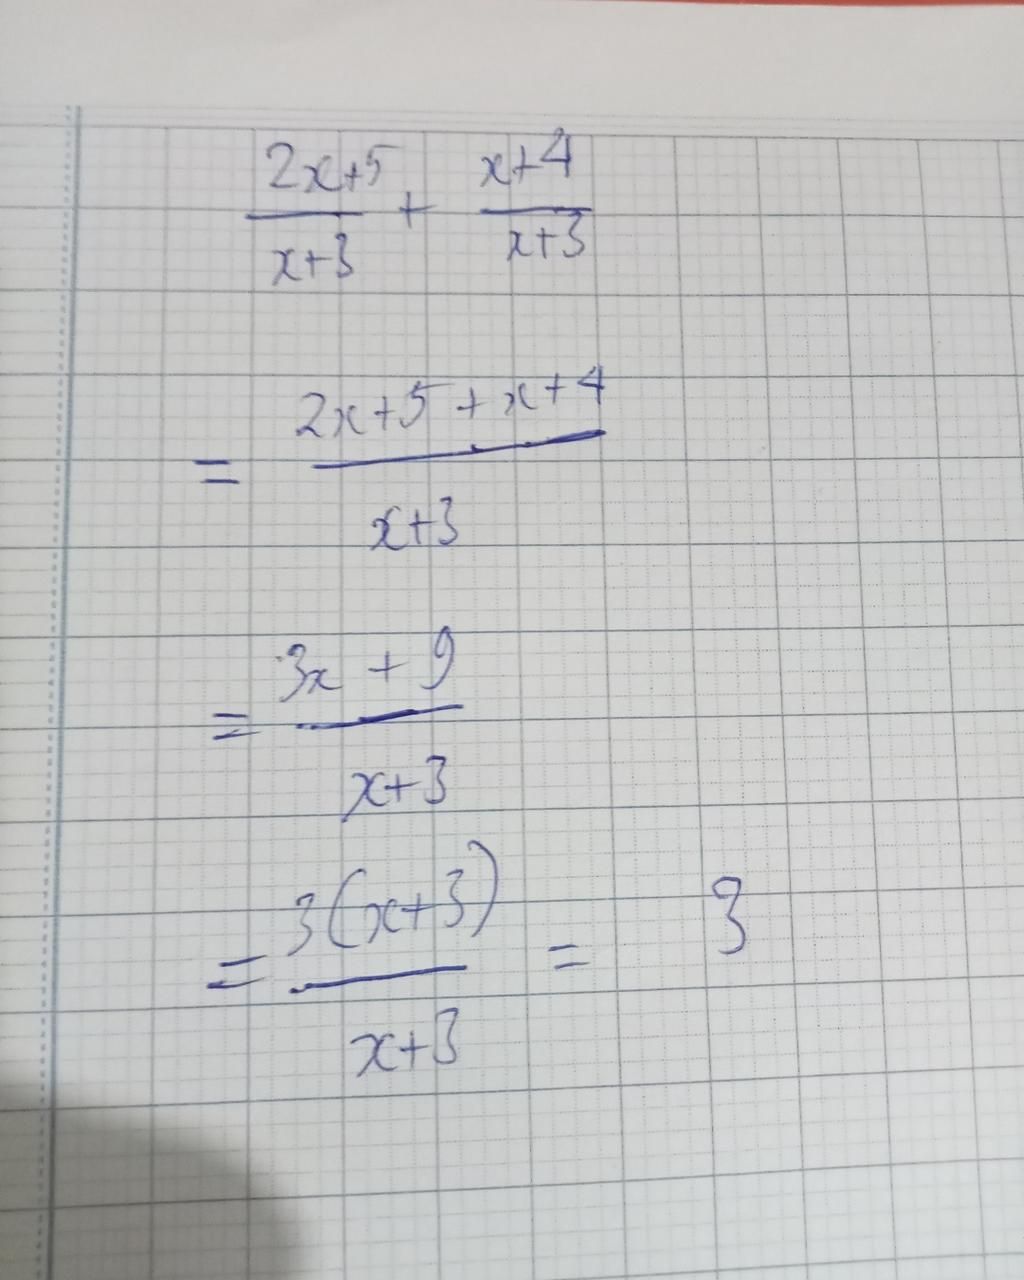 (2x+5)/(x+3) + (x+4)/(x+3)
= (2x+5+x+4)/(x+3)
= (3x+9)/(x+3)
= 3(x+3)/(x+3) = 3